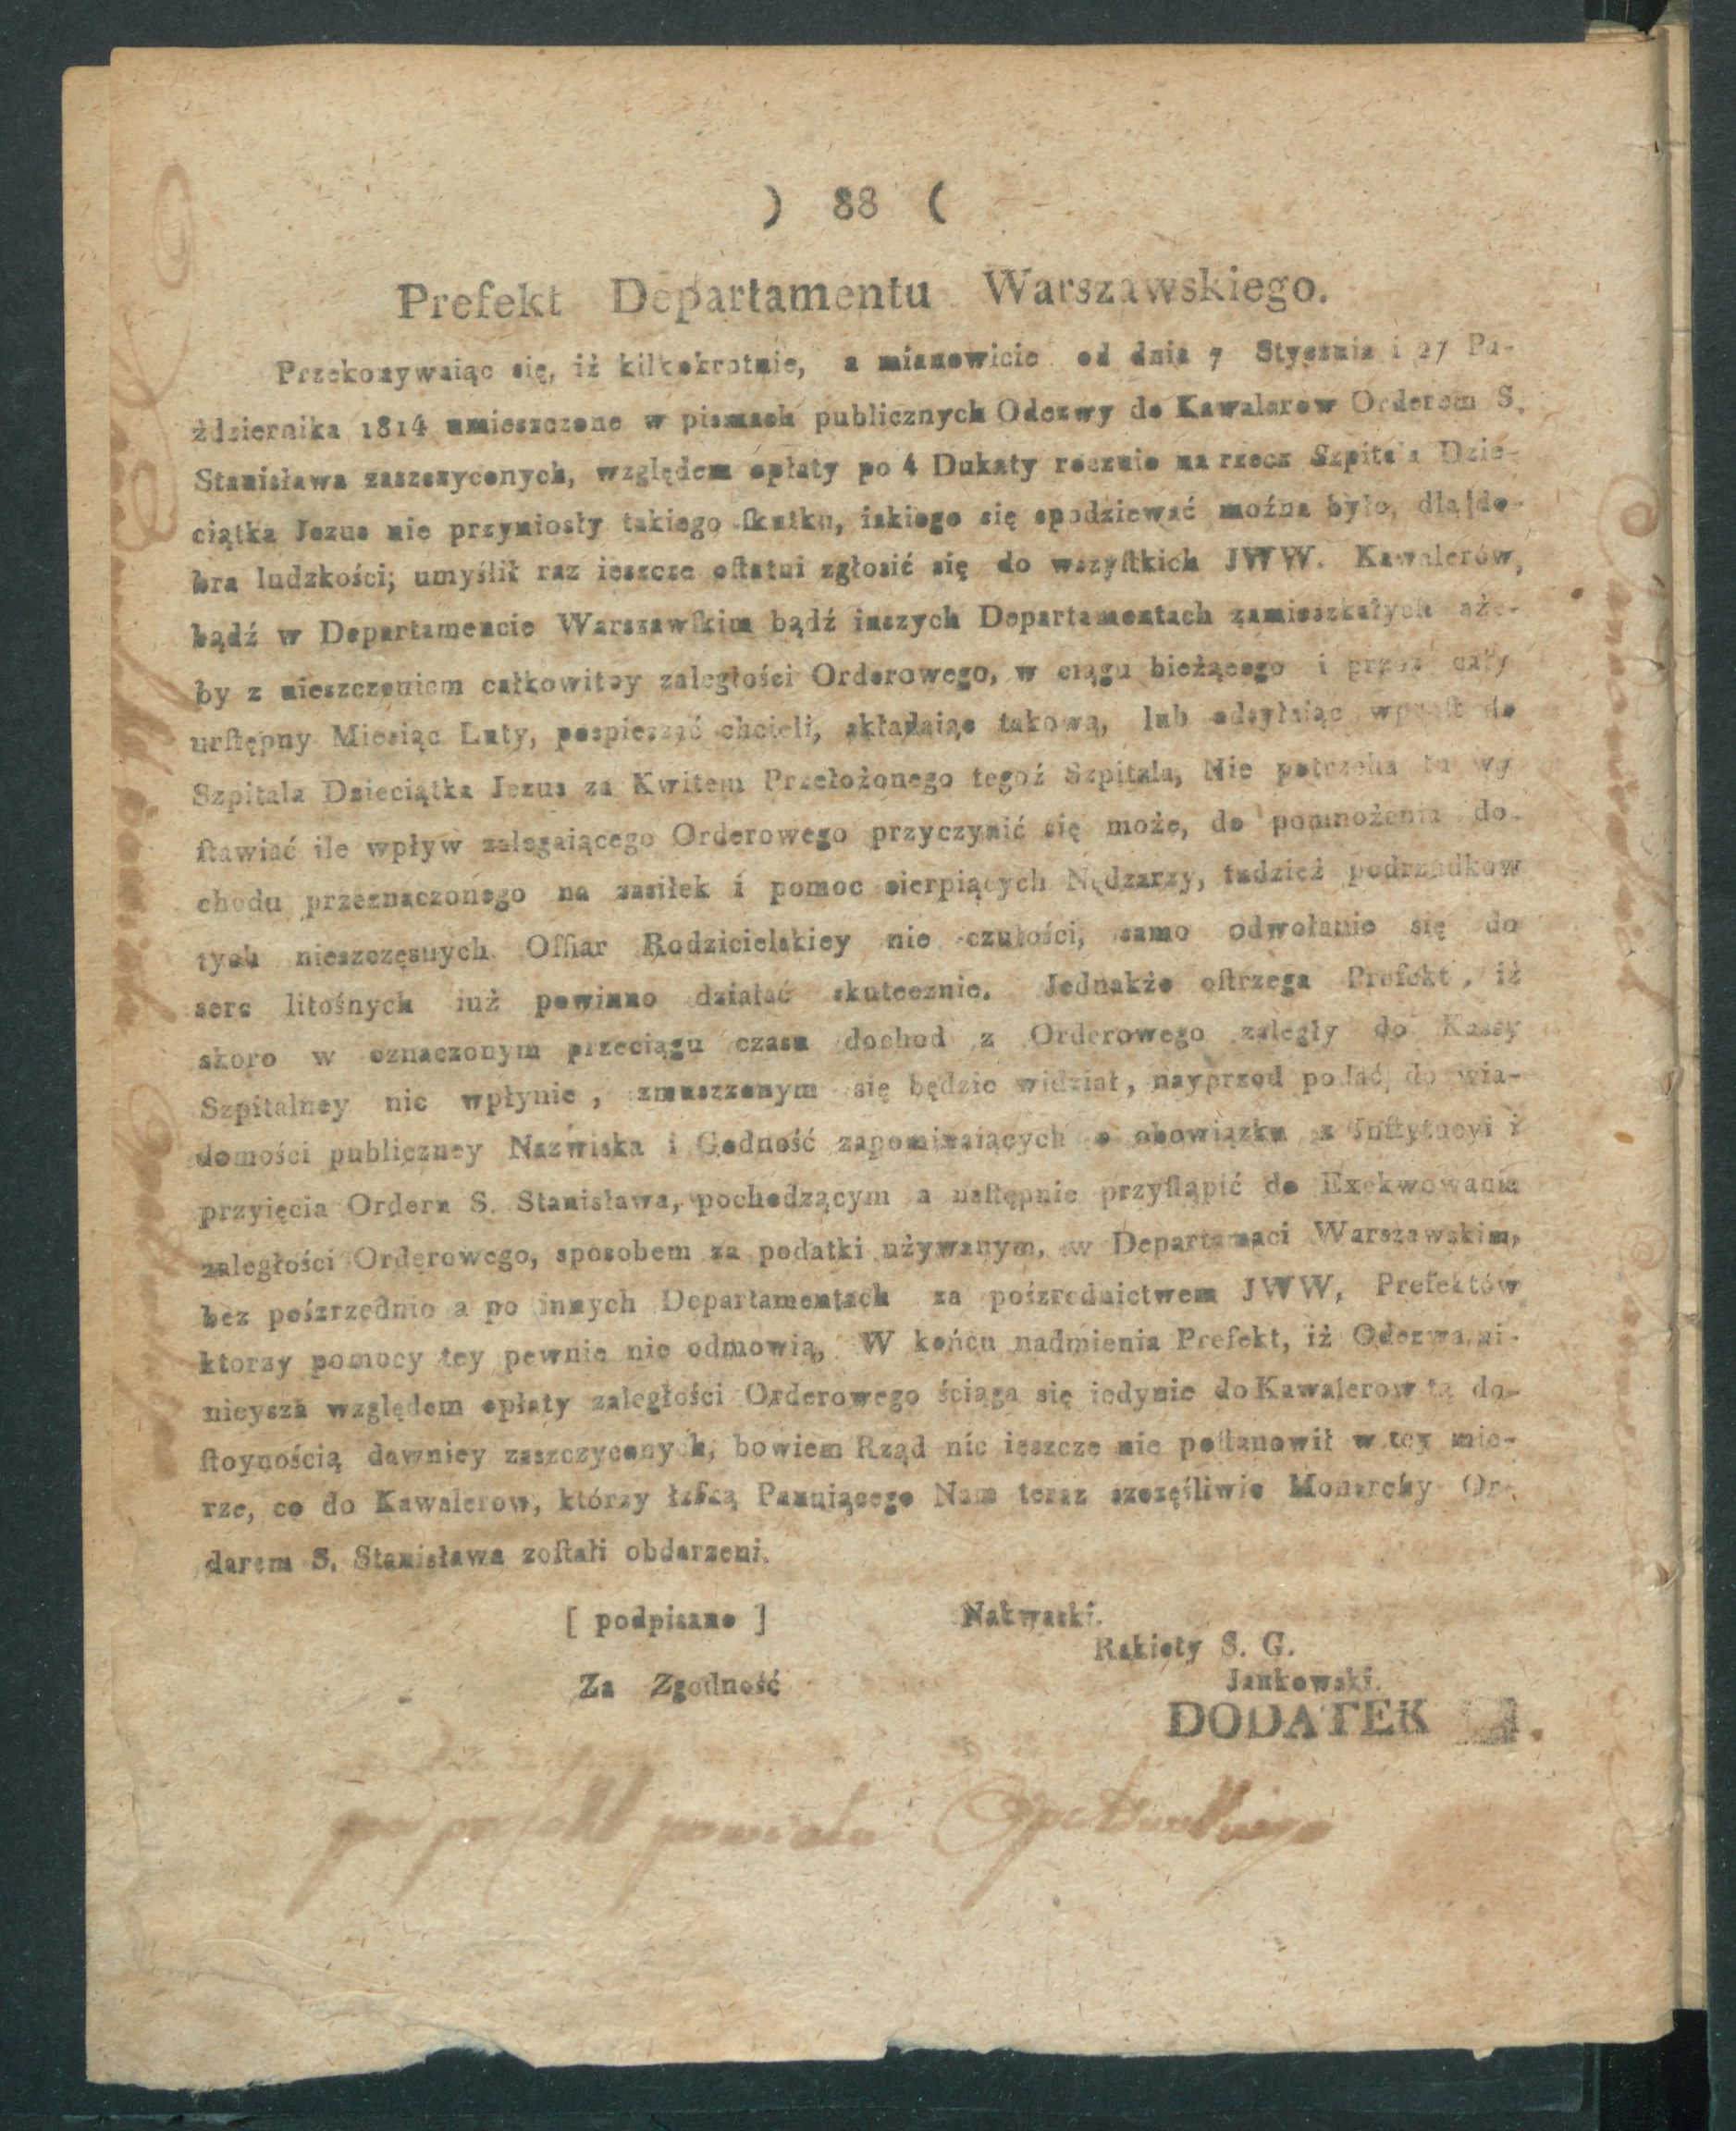 ) 88 (
Prefekt Departamentu Warszawskiego.
Przekonywaiąc się, iż kilkokrotnie, a mianowicie od dnia 7 Stycznia i 27 Pa-
ździernika 1814 umieszczone w pismach publicznych Odezwy do Kawalerow Orderem S.
Stanisława zaszczyconych, względem opłaty po 4 Dukaty rocznie na rzecz Szpitala Dzie-
ciątka Jezus nie przyniosły takiego ſkutku, iakiego się spodziewać moźna było, dla do-
bra ludzkości; umyślił raz ieszcze oſtatni zgłosić się do wszyſtkich JWW. Kawalerów,
bądź w Departamencie Warszawſkim bądź inszych Departamentach zamieszkałych aże-
by z uieszczeniem całkowitey zaległości Orderowego, w ciągu bieżącego i przez cały
urſtępny Miesiąc Luty, pospieszać chcieli, składaiąc takową, lub odsyłaiąc wproſt do
Szpitala Dzieciątka Jezus za Kwitem Przełożonego tegoź Szpitala, Nie potrzeba tu wy
ſtawiać ile wpływ zalegaiącego Orderowego przyczynić się może, do pomnożenia do-
chodu przeznaczonego na zasiłek i pomoc cierpiących Nędzarzy, tudzież podrzudkow
tych nieszczęsnych Offiar Rodzicielskiey nie czułości, samo odwołanie się do
serc litośnych iuż powinno działać skutecznie. Jednakże oſtrzega Prefekt, iż
skoro w oznaczonym przeciągu czasu dochod z Orderowego zaległy do Kassy
Szpitalney nie wpłynie, zmuszzonym się będzie widział, nayprzod podać do wia-
domości publiczney Nazwiska i Godność zapominaiących o obowiązku z Inſtytucyi i
przyięcia Orderu S. Stanisława, pochodzącym a naſtępnie przyſtąpić do Exekwowania
zaległości Orderowego, sposobem za podatki używanym, w Departamaci Warszawskim,
bez pośzrzednio a po innych Departamentach za pośzrednictwem JWW, Prefektów
ktorzy pomocy tey pewnie nie odmowią, W końcu nadmienia Prefekt, iż Odezwa ni-
nieysza względem opłaty zaległości Orderowego ściąga się iedynie do Kawalerow tą do-
ſtoynością dawniey zaszczyconych, bowiem Rząd nic ieszcze nie poſtanowił w tey mie-
rze, co do Kawalerow, którzy łaſką Panuiącego Nam teraz szczęśliwie Monarchy Or-
darem S. Stanisława zoſtali obdarzeni.
[ podpisano ] Nakwaski.
Rakiety S. G.
Za Zgodność Jankowski.
DODATEK